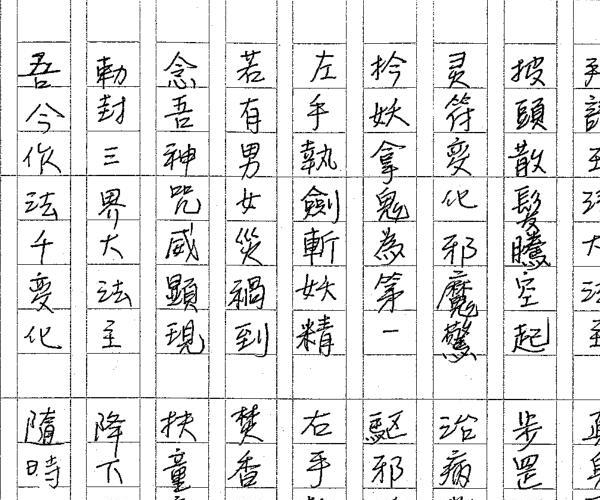 大
披頭散髮騰空起 步罡
灵符变化邪魔驚 治病
扲妖拿鬼為第一 驅邪
左手執劍斬妖精 右手
若有男女災禍到 焚香
念吾神咒威顯現 扶童
勅封三界大法主 降下
吾今作法千变化 隨時